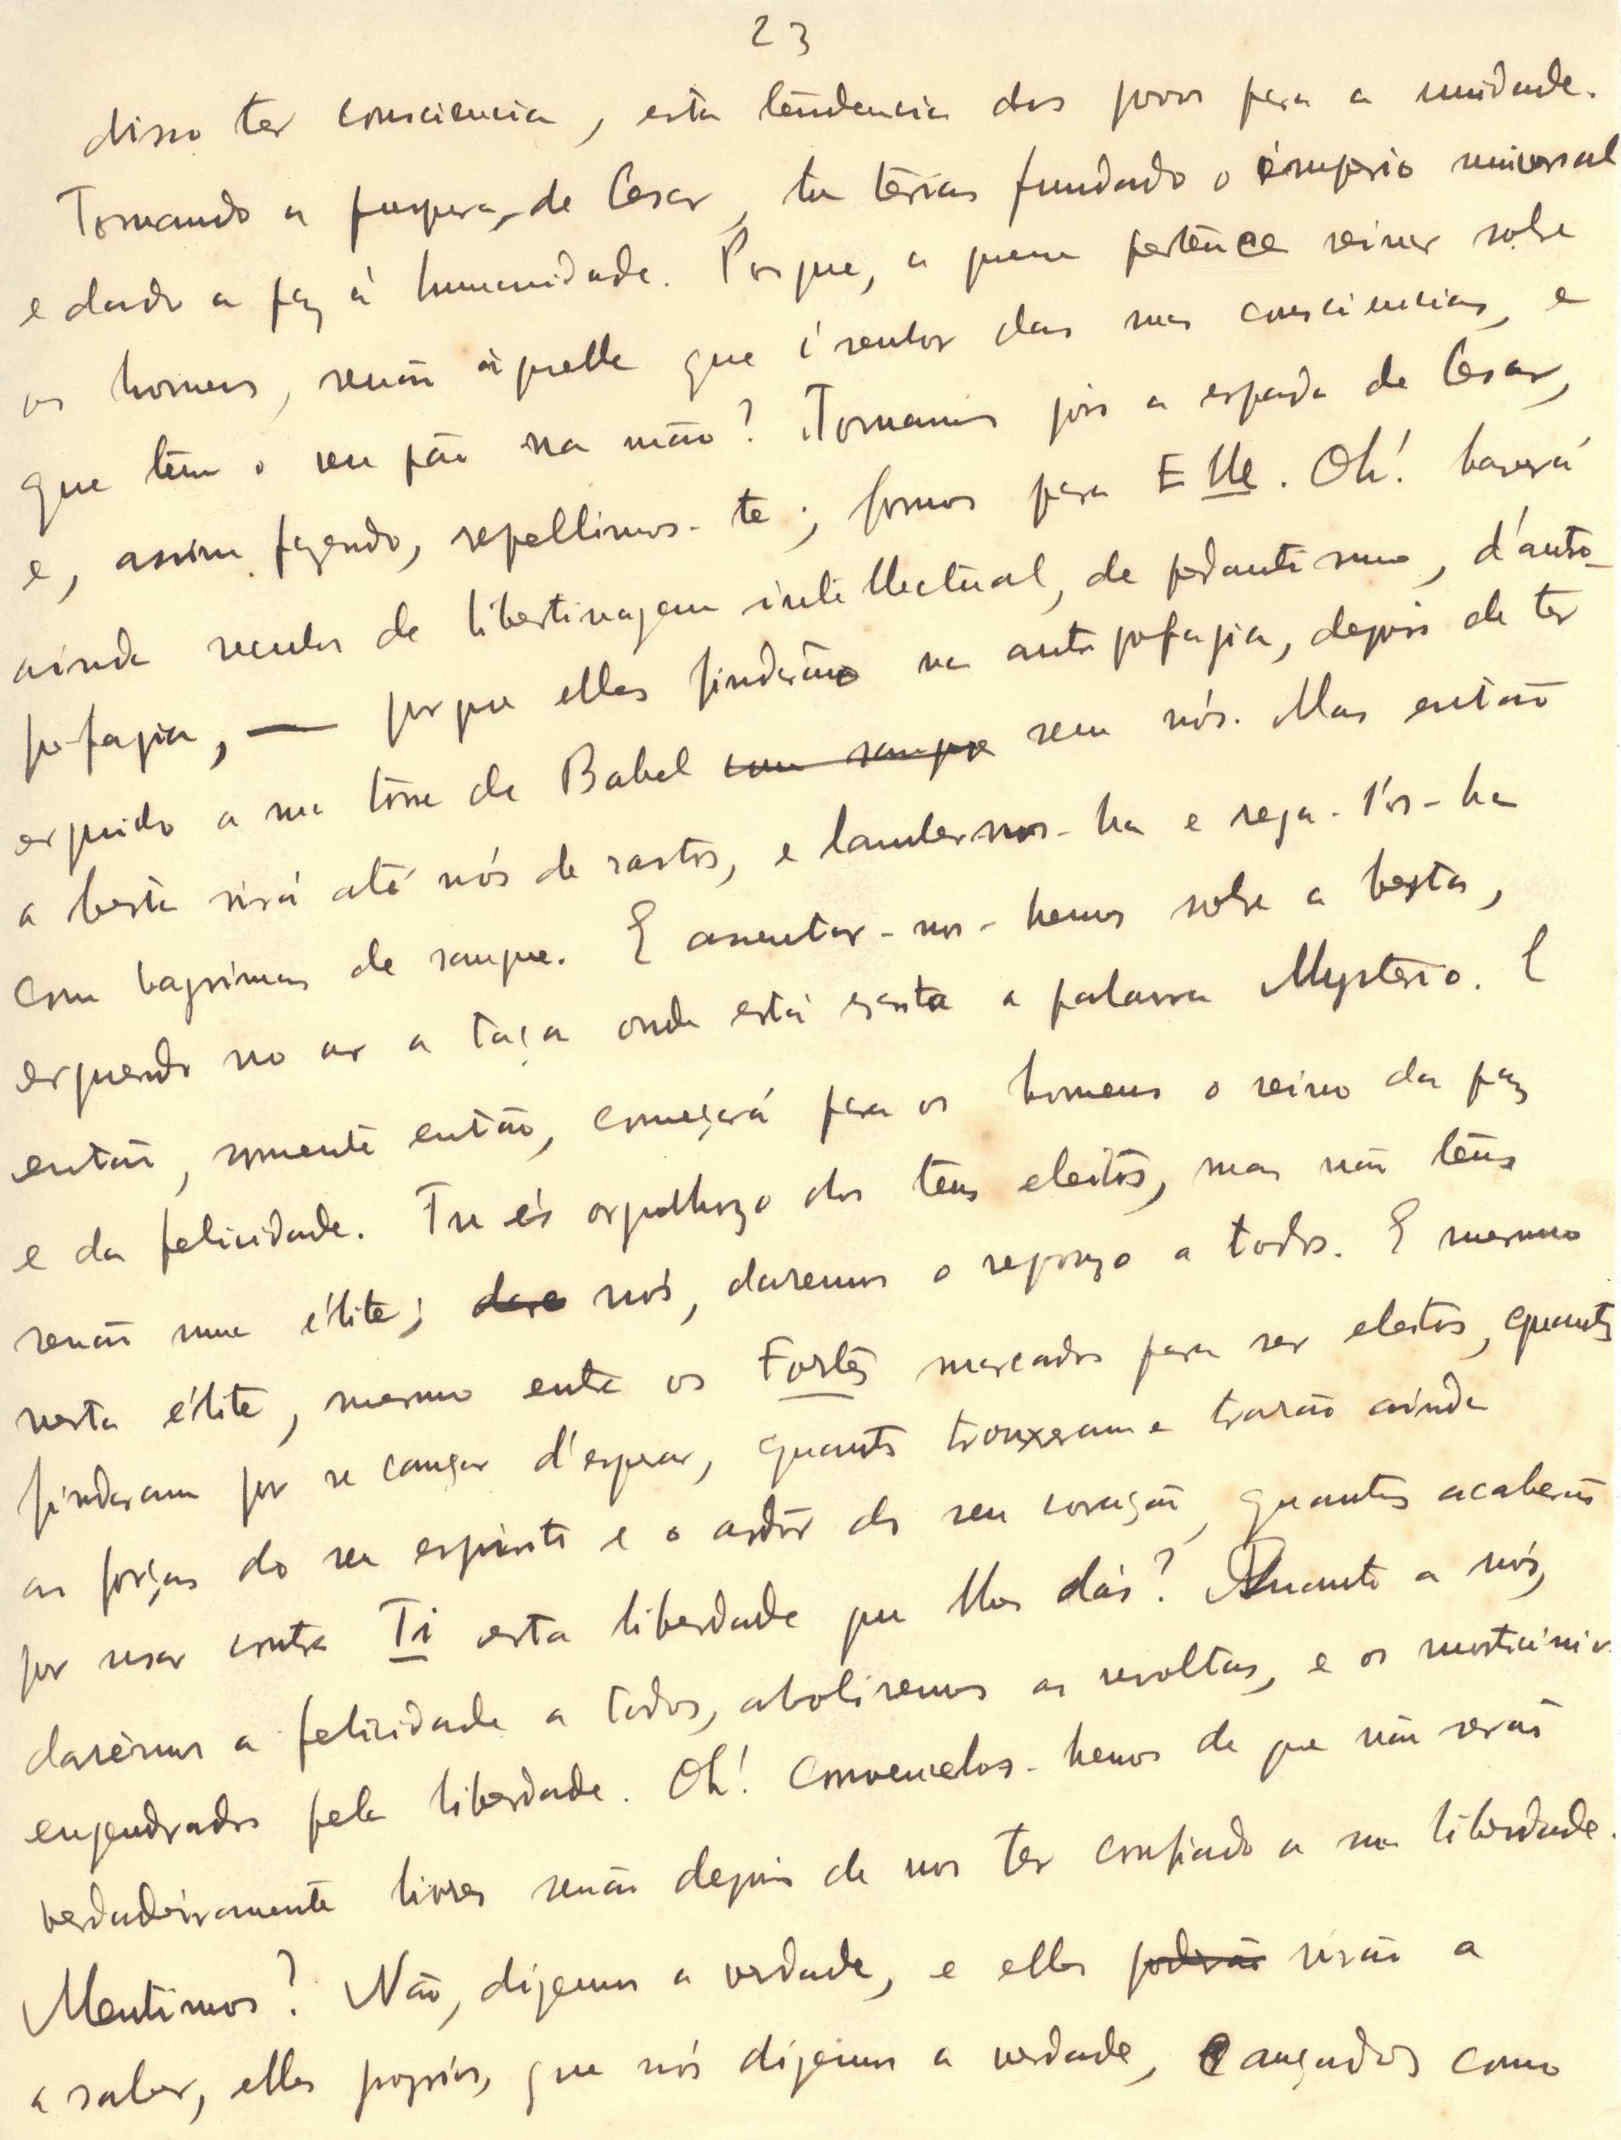 23
disso ter consciencia, esta tendencia dos povos para a unidade.
Tomando a purpura de Cesar, tu terias fundado o imperio universal
e dado a paz á humanidade. Porque, a quem pertence reinar sobre
os homens, senão áquelle que é senhor das suas consciencias, e
que tem o seu pão na mão? Tomamos pois a espada de Cesar,
e, assim fazendo, repellimos-te; fomos para Elle. Oh! haverá
ainda seculos de libertinagem intellectual, de pedantismo, d'antro-
pofagia, — porque elles findarão na antropofagia, depois de ter
erguido a sua torre de Babel com sangue sem nós. Mas então
a besta virá até nós de rastos, e lamber-nos-ha e rega-l'os-ha
com lagrimas de sangue. E assentar-nos-hemos sobre a besta,
erguendo no ar a taça onde está escrita a palavra Mysterio. E
então, somente então, começará para os homens o reino da paz
e da felicidade. Tu és orgulhozo dos teus eleitos, mas não tens
senão uma élite; dare nós, daremos o repouzo a todos. E mesmo
nesta élite, mesmo entre os Fortes marcados para ser eleitos, quantos
findaram por se cançar d'esperar, quantos trouxeram e trarão ainda
as forças do seu espirito e o ardor do seu coração, quantos acabarão
por usar contra Ti esta liberdade que lhes dás? Quanto a nós,
daremos a felicidade a todos, aboliremos as revoltas, e os morticinios
engendrados pela liberdade. Oh! Convencelos-hemos de que não serão
verdadeiramente livres senão depois de nos ter confiado a sua liberdade.
Mentimos? Não, dizemos a verdade, e elles poderão virão a
a saber, elles proprios, que nós dizemos a verdade, cançados como